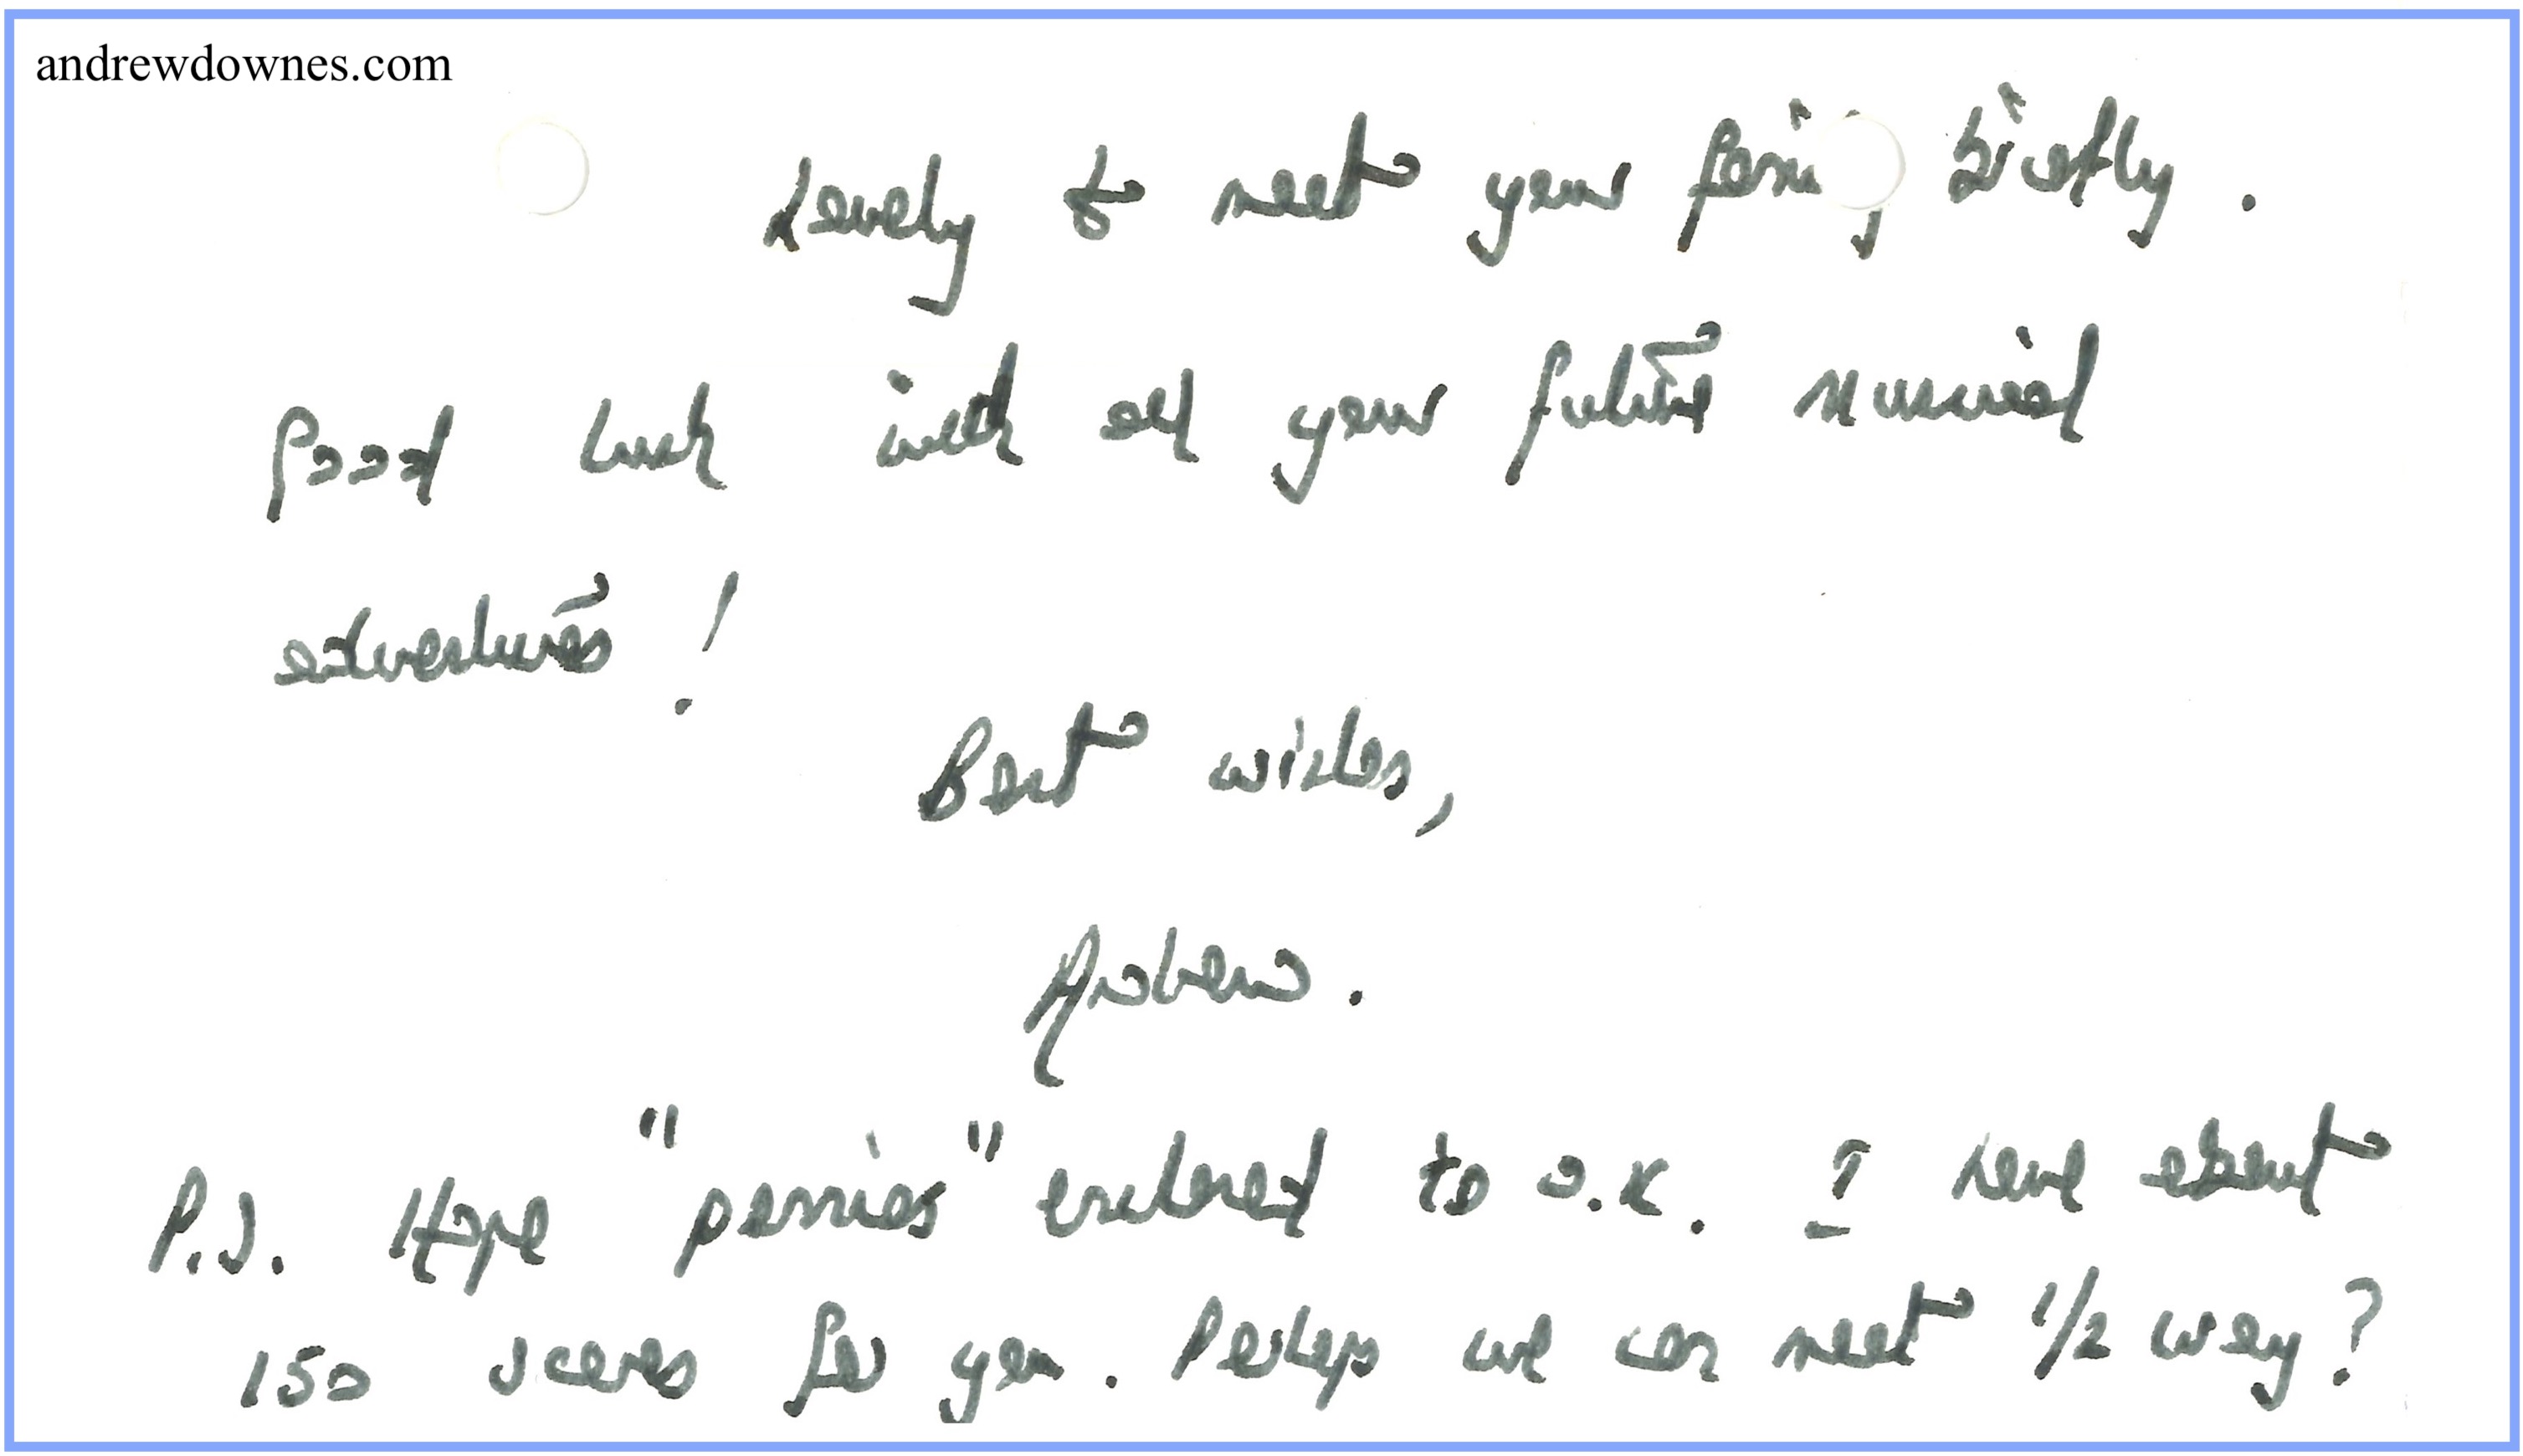 andrewdownes.com
Lovely to meet your family briefly.
Good luck with all your future musical
adventures!
Best wishes,
Andrew.
P.S. Hope "pennies" enclosed to O.K. I have about
150 scores for you. Perhaps we can meet 1/2 way?